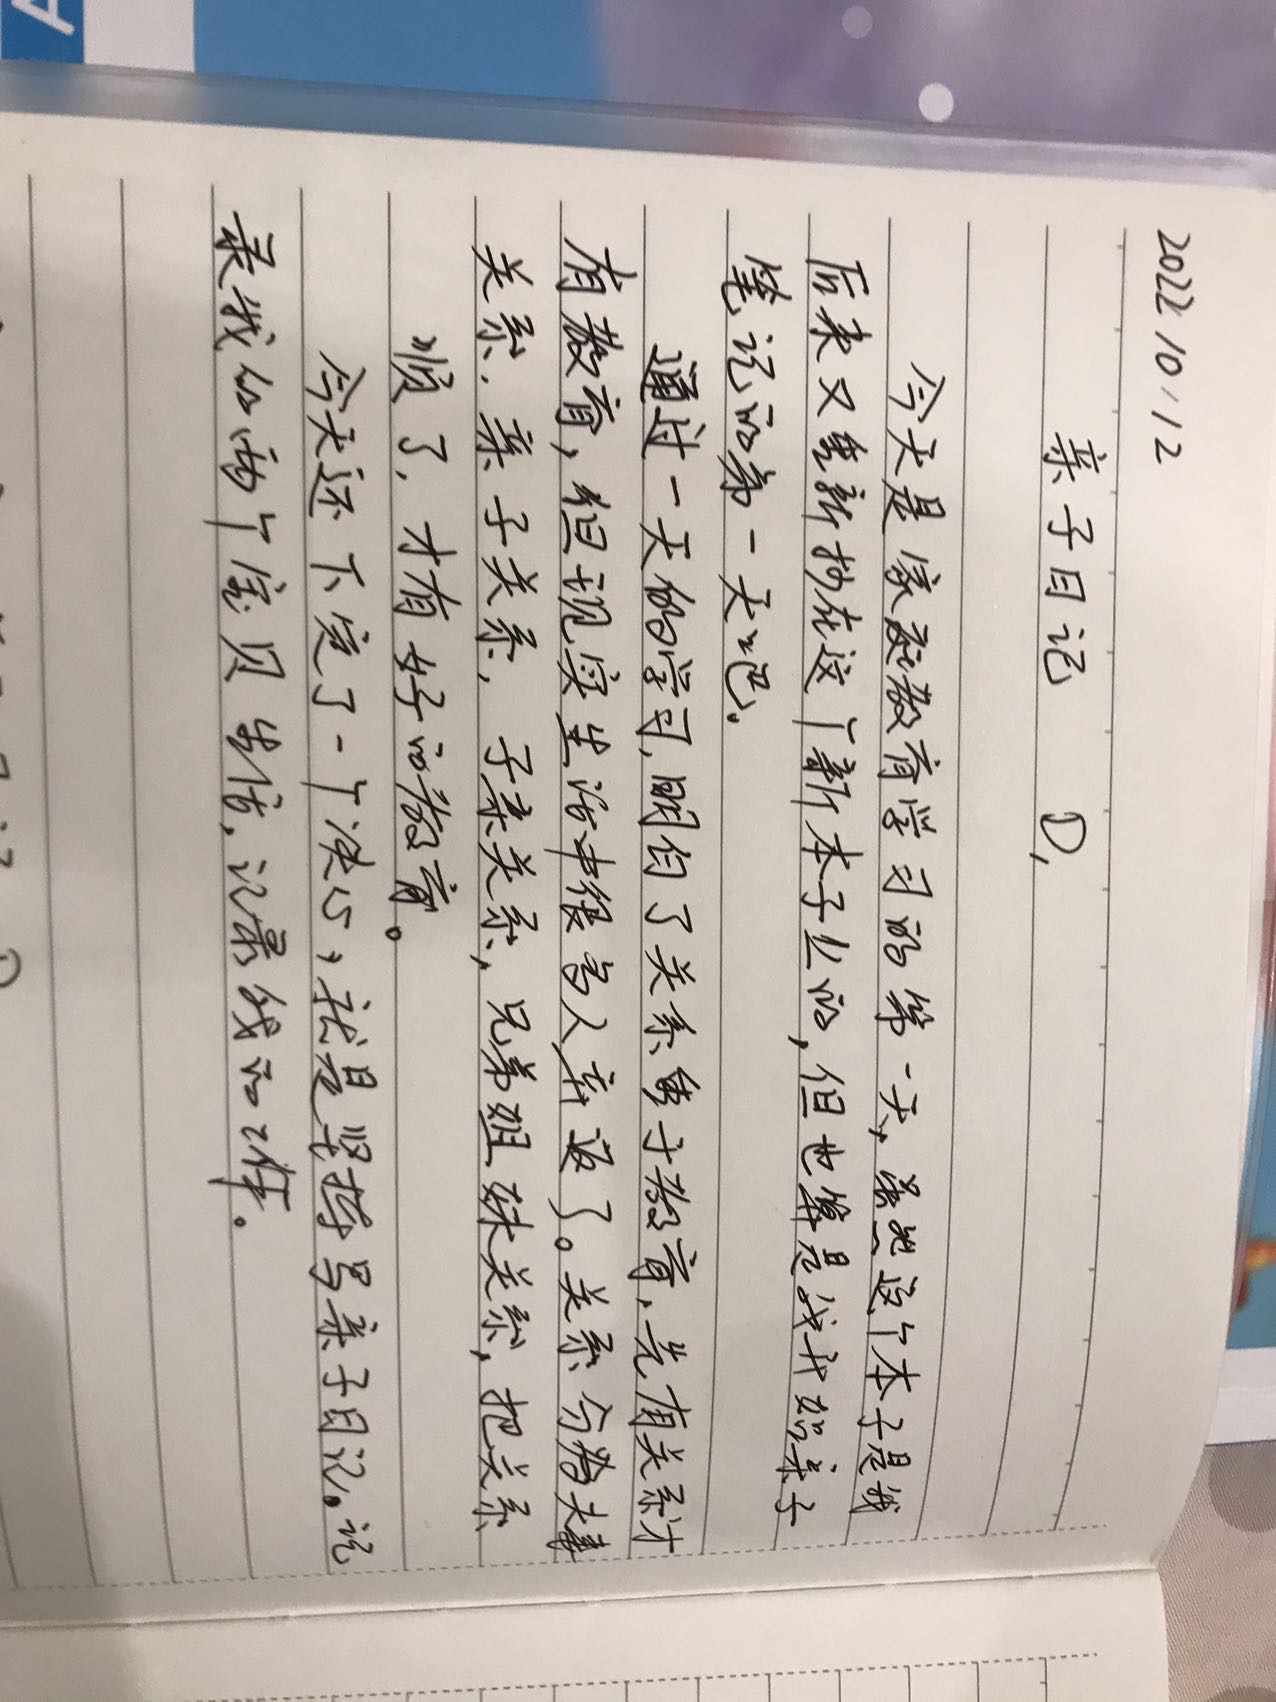 2022 10.12
亲子日记 ①,
今天是家庭教育学习的第一天,虽然这个本子是我
后来又重新抄在这个新本子上的,但也算是我开始亲子
笔记的第一天吧.
通过一天的学习,明白了关系重于教育,先有关系才
有教育,但现实生活中很多人弄返了。关系分为夫妻
关系.亲子关系,子亲关系,兄弟姐妹关系,把关系
顺了,才有好的教育。
今天还下定了一个决心,就是坚持写亲子日记。记
录我和两个宝贝
,记录我的工作。